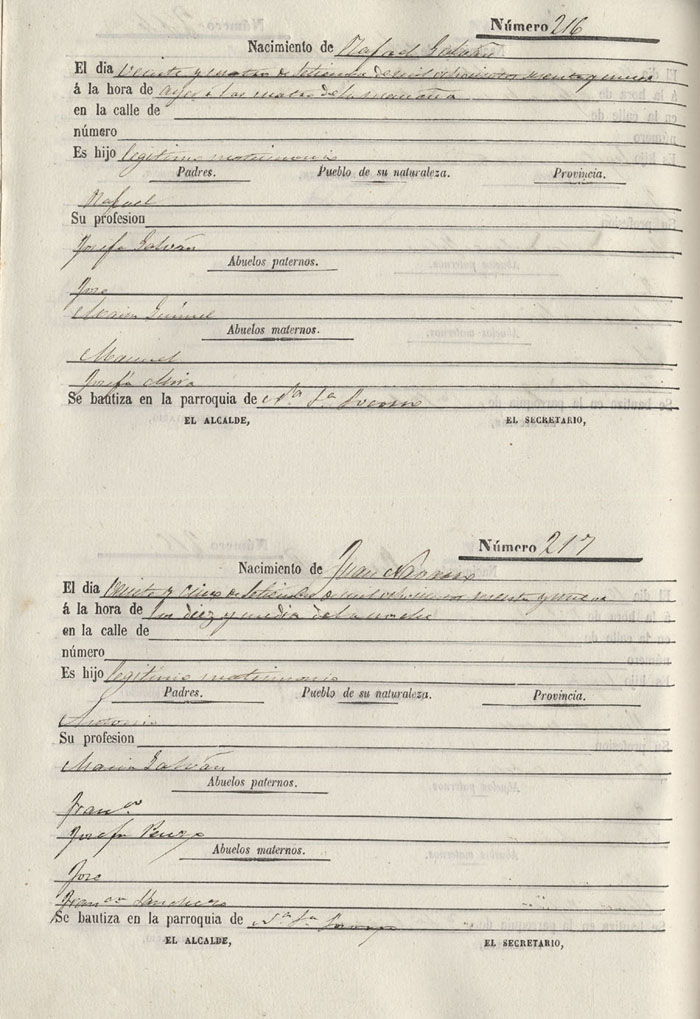 Número 216
Nacimiento de Rafael Galvañ
El dia veinte y cuatro de Setiembre de mil ochocientos
á la hora de ayer a las cuatro de la mañana
en la calle de
número
Es hijo legitimo matrimonio
Padres. Pueblo de su naturaleza. Provincia.
Rafael
Su profesion
Josefa Galvañ
Abuelos paternos.
Jose
Maria
Abuelos maternos.
Manuel
Josefa Mira
Se bautiza en la parroquia de Nª Sª
EL ALCALDE, EL SECRETARIO,
Número 217
Nacimiento de Juan
El dia veinte y cinco de Setiembre de mil ochocientos
á la hora de las diez y media de la noche
en la calle de
número
Es hijo legitimo matrimonio
Padres. Pueblo de su naturaleza. Provincia.
Antonio
Su profesion
Maria Galvañ
Abuelos paternos.
Franco
Josefa
Abuelos maternos.
Jose
Franca
Se bautiza en la parroquia de Nª Sª
EL ALCALDE, EL SECRETARIO,